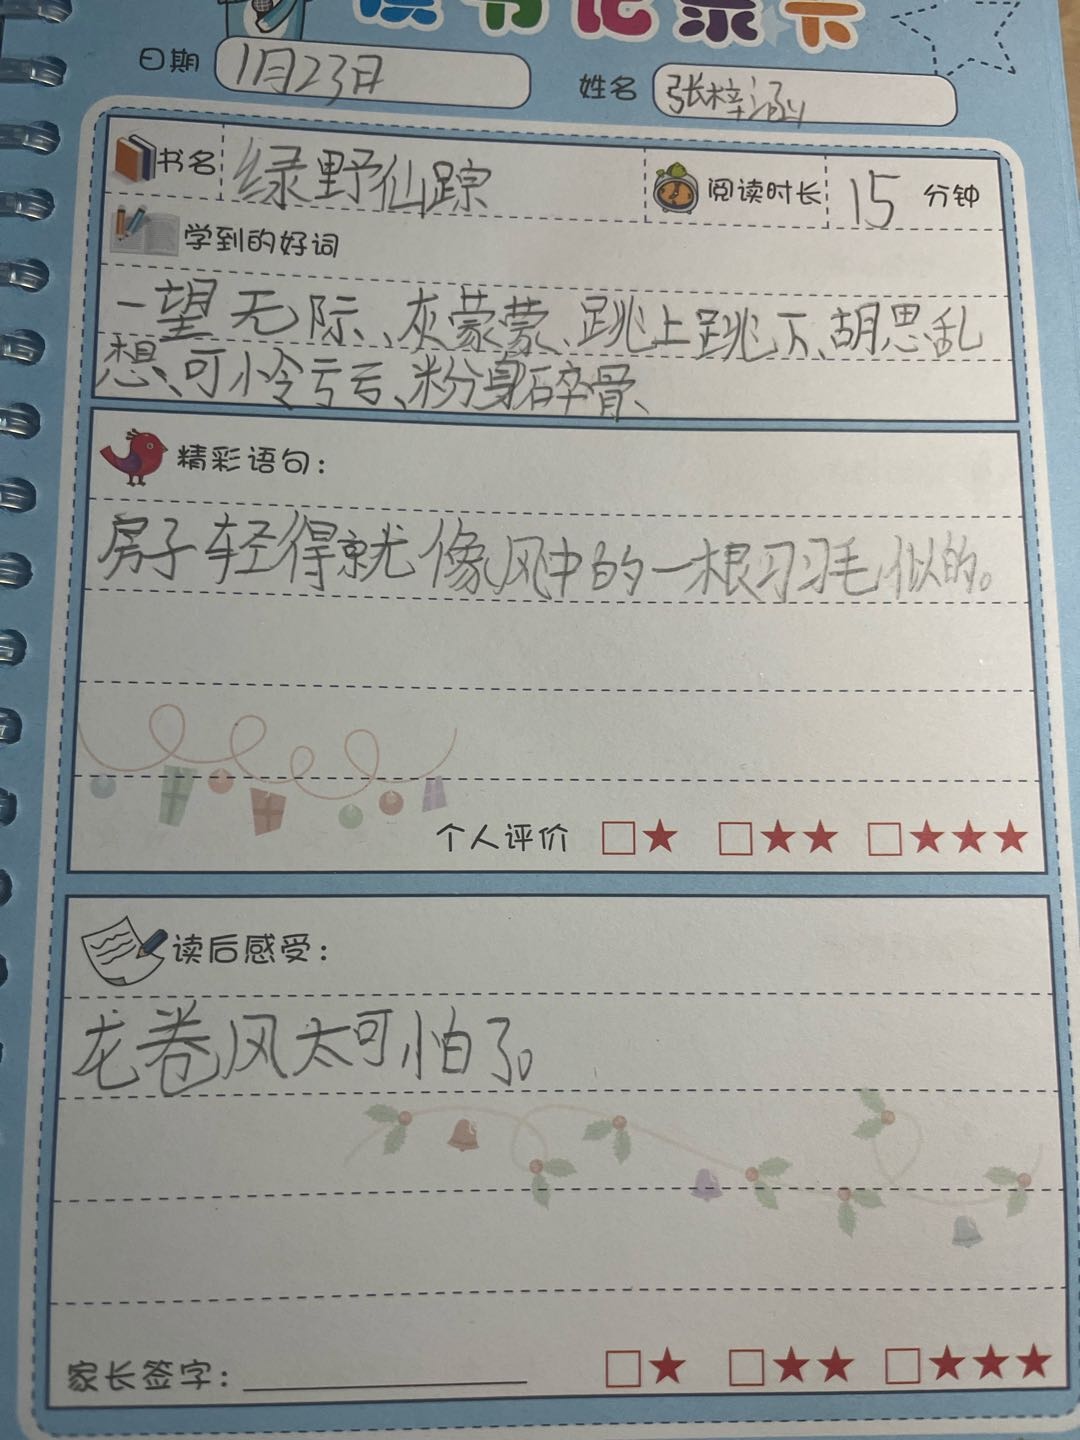 读书记录卡
日期 1月23日 姓名 张梓涵
书名 绿野仙踪 阅读时长 15 分钟
学到的好词
一望无际、灰蒙蒙、跳上跳下、胡思乱
想、可怜亏亏、粉身碎骨、
精彩语句：
房子轻得就像风中的一根羽毛似的。
个人评价 □★ □★★ □★★★
读后感受：
龙卷风太可怕了。
家长签字： □★ □★★ □★★★